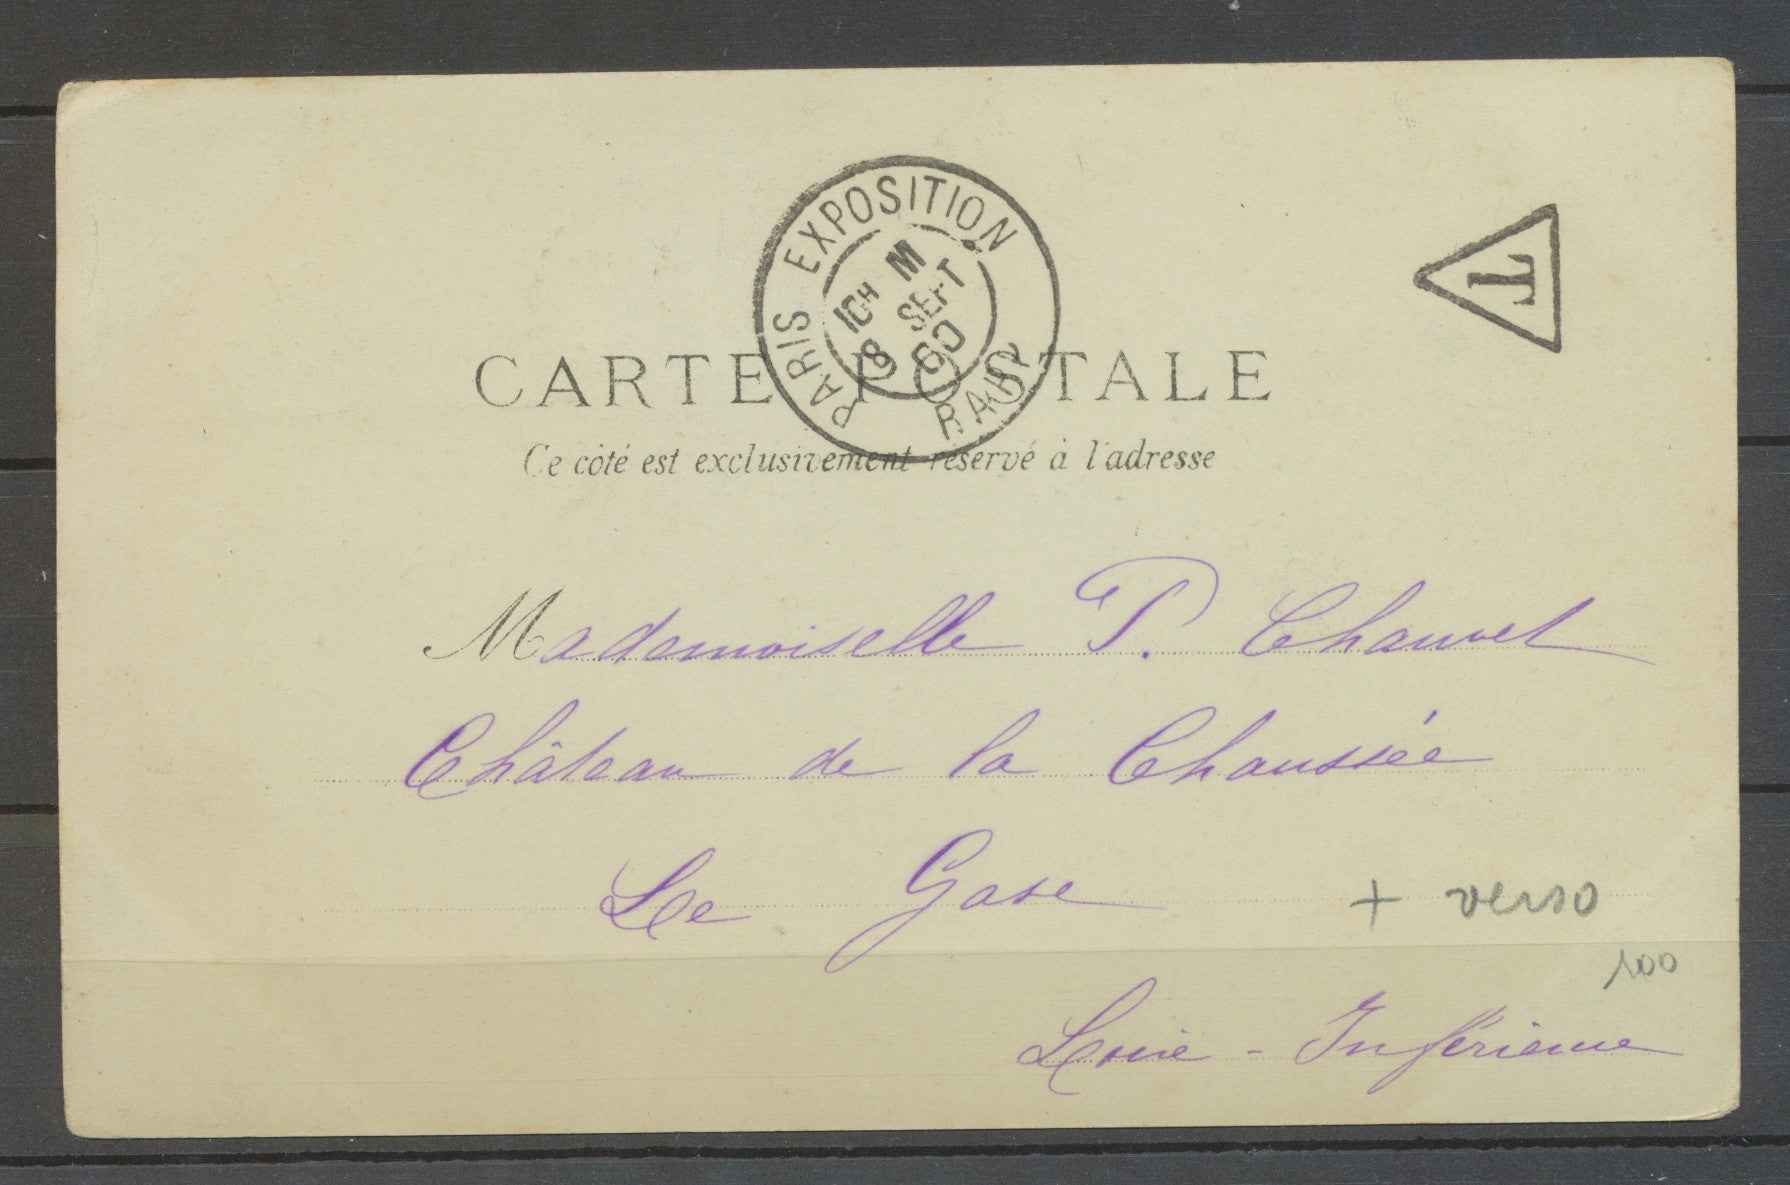 PARIS EXPOSITION
10H M
8 SEPT
00
RAPP
T
CARTE POSTALE
Ce côté est exclusivement réservé à l'adresse
Mademoiselle P. Chauvet
Château de la Chaussée
Le Gâvre
+ verso
100
Loire-Inférieure